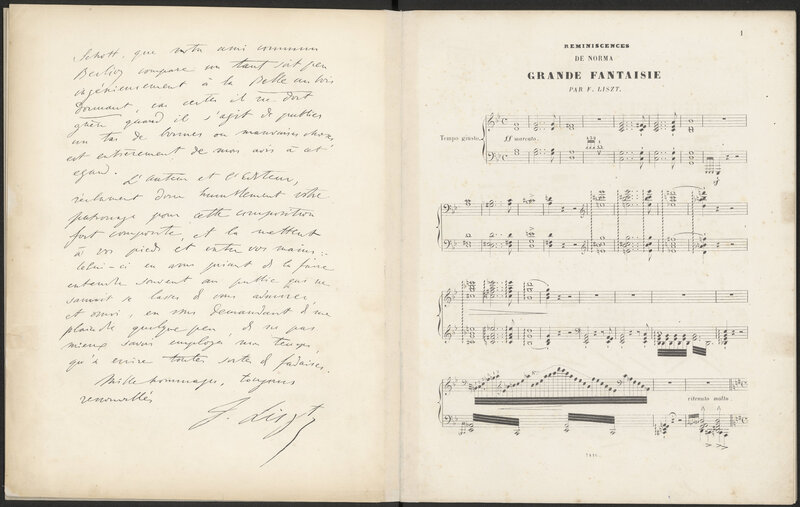 Schott, que notre ami commun
Berlioz compare un tant soit peu
ingénieusement à la Belle au bois
Dormant, car certes il ne dort
guère quand il s'agit de publier
un tas de bonnes ou mauvaises choses
est entièrement de mon avis à cet
égard.
L'auteur et l'Editeur,
réclament donc humblement votre
patronage pour cette composition
fort composite et la mettent
à vos pieds et entre vos mains
Celui-ci en vous priant de la faire
entendre souvent au public qui ne
saurait se lasser de vous admirer,
et moi, en vous demandant de me
plaindre quelque peu, de ne pas
mieux savoir employer mon temps
qu'à écrire toutes sortes de fadaises.
Mille hommages, toujours
renouvellés
F. Liszt
1
REMINISCENCES
DE NORMA
GRANDE FANTAISIE
PAR F. LISZT.
Tempo giusto.
ff marcato.
ritenuto molto